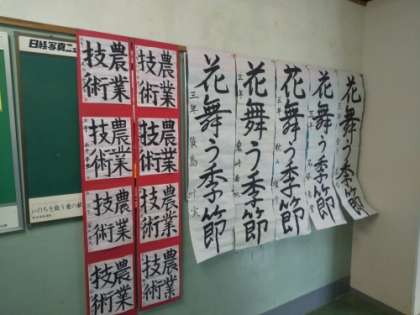 日経写真ニュ
いのちを救う愛の献
農業
技術
農業
技術
農業
技術
農業
技術
農業
技術
農業
技術
農業
技術
農業
技術
花舞う季節
三年
花舞う季節
三年
花舞う季節
三年
花舞う季節
花舞う季節